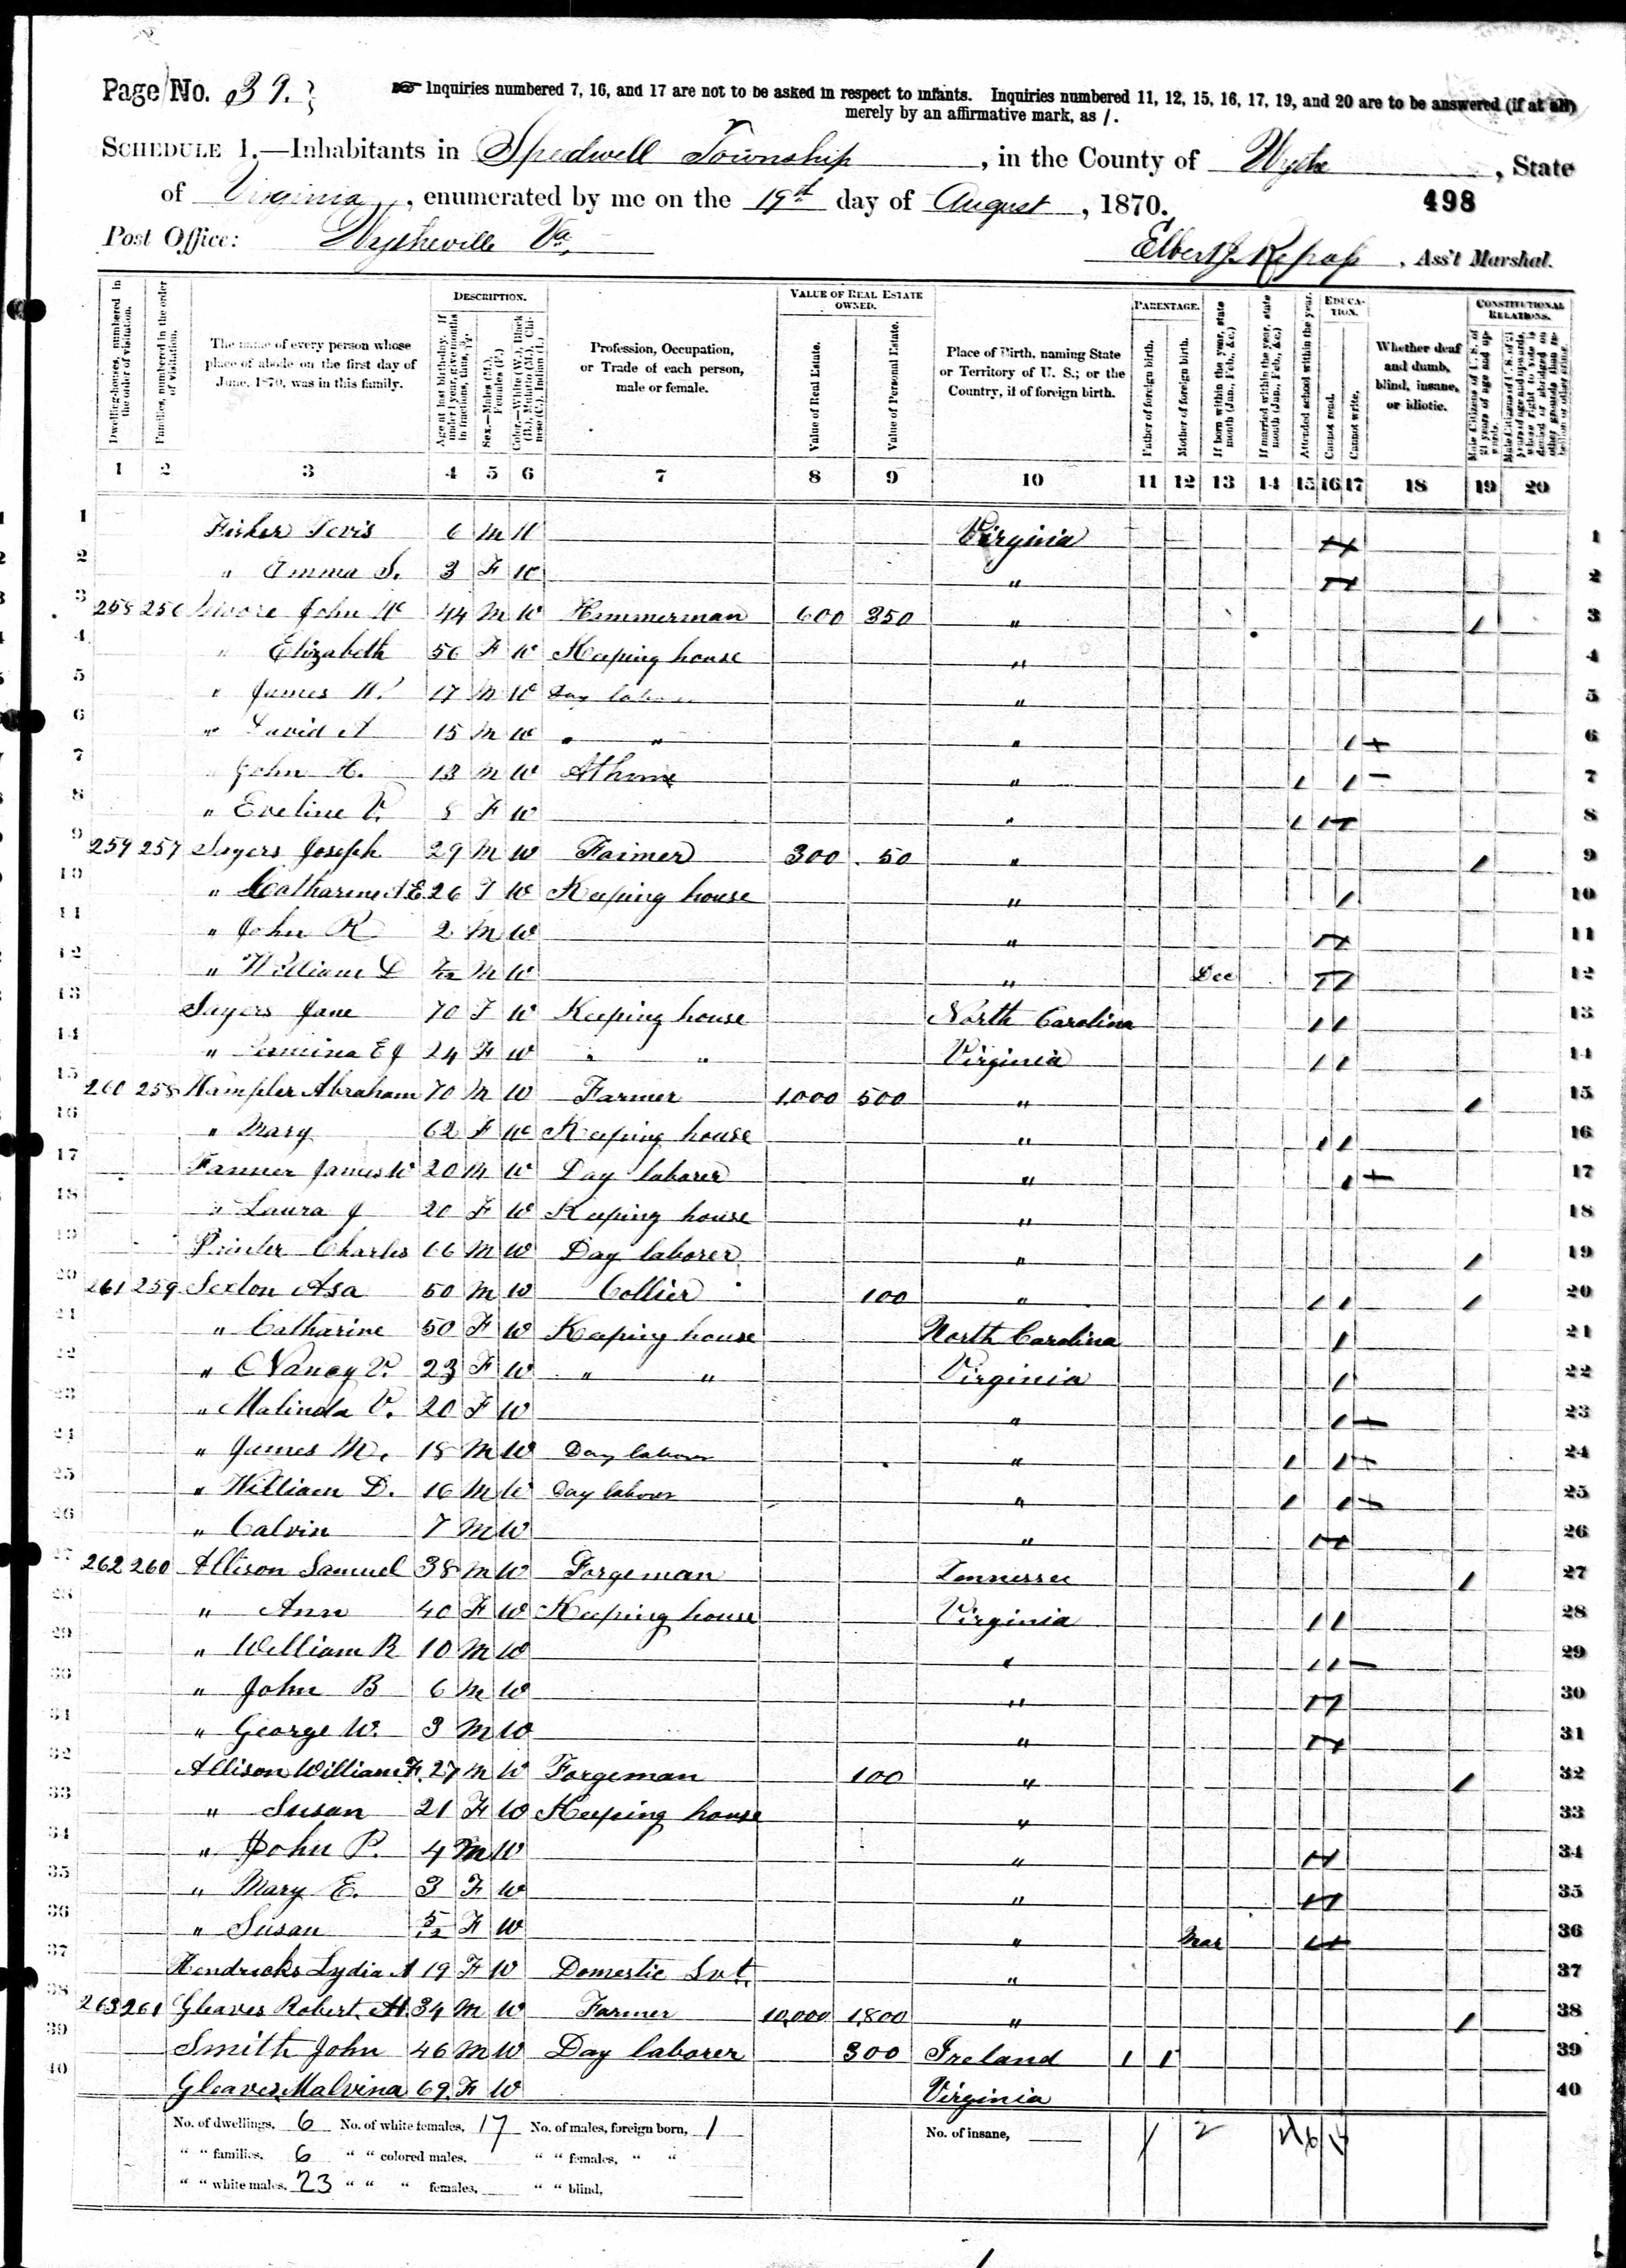 Page No. 39.
Inquiries numbered 7, 16, and 17 are not to be asked in respect to infants. Inquiries numbered 11, 12, 15, 16, 17, 19, and 20 are to be answered (if at all)
merely by an affirmative mark, as /.
SCHEDULE 1.—Inhabitants in Spedwell Township, in the County of Wythe, State
of Virginia, enumerated by me on the 19th day of August, 1870.
498
Post Office: Wytheville Va.
Elbert J. Repass, Ass't Marshal.
DESCRIPTION. VALUE OF REAL ESTATE OWNED. PARENTAGE. EDUCATION. CONSTITUTIONAL RELATIONS.
Dwelling-houses, numbered in the order of visitation.
Families, numbered in the order of visitation.
The name of every person whose place of abode on the first day of June, 1870, was in this family.
Age at last birth-day. If under 1 year, give months in fractions, thus, 3/12.
Sex.—Males (M.), Females (F.)
Color.—White (W.), Black (B.), Mulatto (M.), Chinese (C.), Indian (I.)
Profession, Occupation, or Trade of each person, male or female.
Value of Real Estate.
Value of Personal Estate.
Place of Birth, naming State or Territory of U. S.; or the Country, if of foreign birth.
Father of foreign birth.
Mother of foreign birth.
If born within the year, state month (Jan., Feb., &c.)
If married within the year, state month (Jan., Feb., &c.)
Attended school within the year.
Cannot read.
Cannot write.
Whether deaf and dumb, blind, insane, or idiotic.
Male Citizens of U. S. of 21 years of age and upwards.
Male Citizens of U. S. of 21 years of age and upwards, whose right to vote is denied or abridged on other grounds than rebellion or other crime.
1 2 3 4 5 6 7 8 9 10 11 12 13 14 15 16 17 18 19 20
1 Fisher 6 M W Virginia 1
2 " Emma S. 3 F W " 2
3 258 256 Moore John W 44 M W Hammerman 600 350 " / 3
4 " Elizabeth 56 F W Keeping house " 4
5 " James W. 17 M W Day labor "  5
6 " David A 15 M W " " " / 6
7 " John H. 13 M W At home " / / 7
8 " Eveline V. 8 F W " / / / 8
9 259 257 Sayers Joseph 29 M W Farmer 300 50 " / 9
10 " Catharine A E 26 F W Keeping house " / 10
11 " John R 2 M W " 11
12 " William D M W " Dec 12
13 Sayers Jane 70 F W Keeping house North Carolina / / 13
14 " E J 24 F W " " Virginia / / 14
15 260 258 Wampler Abraham 70 M W Farmer 1,000 500 " / 15
16 " Mary 62 F W Keeping house " / / 16
17 James W 20 M W Day laborer " / 17
18 " Laura J 20 F W Keeping house " 18
19 Painter Charles 66 M W Day laborer " / 19
20 261 259 Sexton Asa 50 M W Collier 100 " / / / 20
21 " Catharine 50 F W Keeping house North Carolina / 21
22 " Nancy V. 23 F W " " Virginia / 22
23 " Malinda V. 20 F W " / 23
24 " James M. 18 M W Day labour " / / 24
25 " William D. 16 M W Day labour " / / 25
26 " Calvin 7 M W " 26
27 262 260 Allison Samuel 38 M W Forgeman Tennessee / 27
28 " Ann 40 F W Keeping house Virginia / / 28
29 " William R 10 M W " / / 29
30 " John B 6 M W " 30
31 " George W. 3 M W " 31
32 Allison William F. 27 M W Forgeman 100 " / 32
33 " Susan 21 F W Keeping house " 33
34 " John P. 4 M W " 34
35 " Mary E. 3 F W " 35
36 " Susan 5/12 F W " Mar 36
37 Hendricks Lydia A 19 F W Domestic Svt. " 37
38 263 261 Gleaves Robert A. 34 M W Farmer 10,000 1,800 " / 38
39 Smith John 46 M W Day laborer 300 Ireland / / 39
40 Gleaves Malvina 69 F W Virginia 40
No. of dwellings, 6 No. of white females, 17 No. of males, foreign born, 1 No. of insane, 1 2
" " families, 6 " " colored males, " " females, " "
" " white males, 23 " " " females, " " blind,